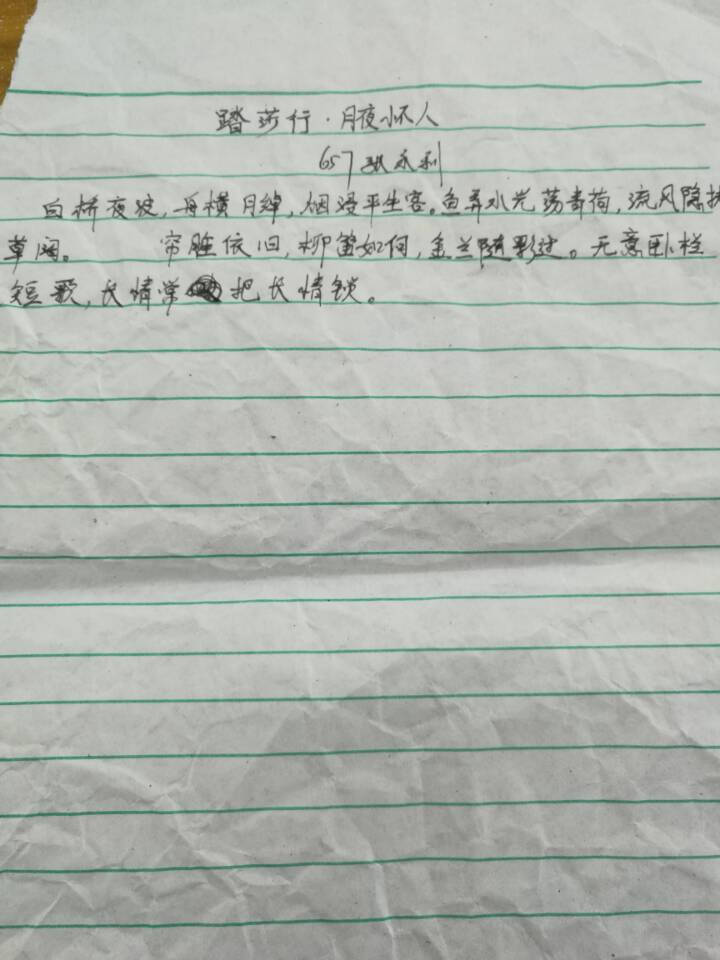 踏莎行·月夜怀人
657 永利
白桥夜泼，舟横月绰，烟浸平生客。鱼弄水光荡青荷，流风隐扶
草阔。 帘胜依旧，柳笛如何，金兰随影过。无意卧栏
短歌，长情常把长情锁。